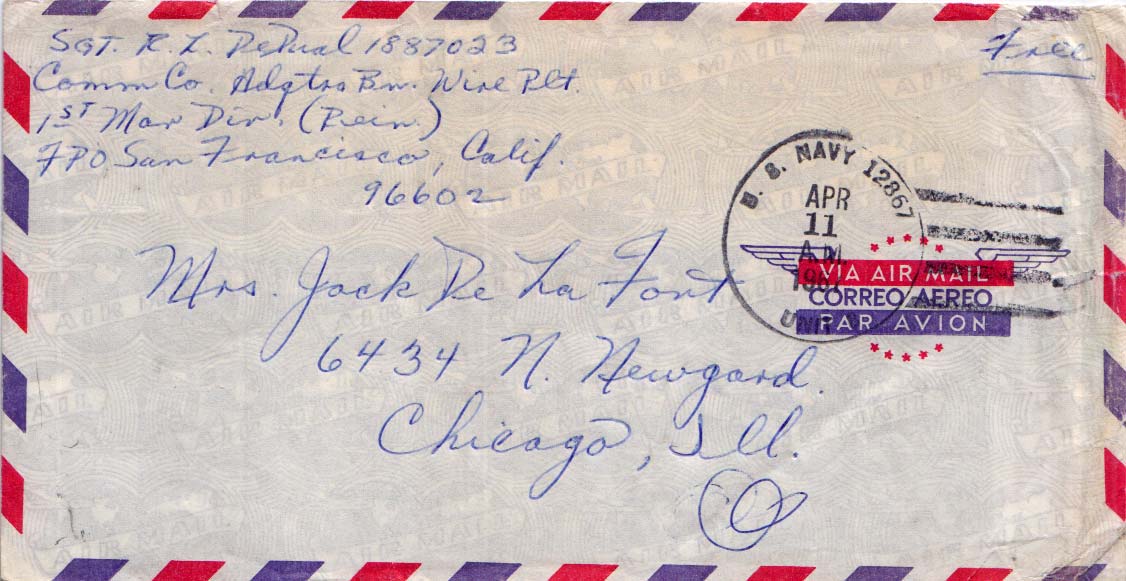 Sgt. R. L. DePual 1887023
Free
Comm Co. Hdqtrs Bn. Wire Plt.
1st Mar Div. (Rein.)
FPO San Francisco, Calif.
96602
U. S. NAVY 12867
APR
11
A.M.
UNIT
VIA AIR MAIL
CORREO AEREO
PAR AVION
Mrs. Jack De La Font
6434 N. Newgard.
Chicago, Ill.